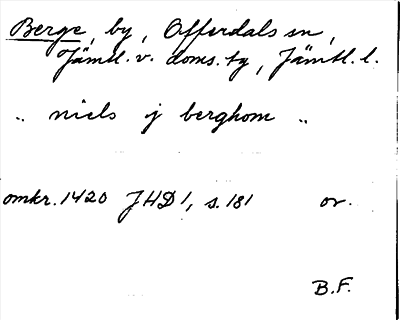 Berge, by, Offerdals sn,
Jämtl. v. doms. tg, Jämtl. l.
„ niels j berghom „
omkr. 1420 JHD 1, s. 181 or.
B.F.